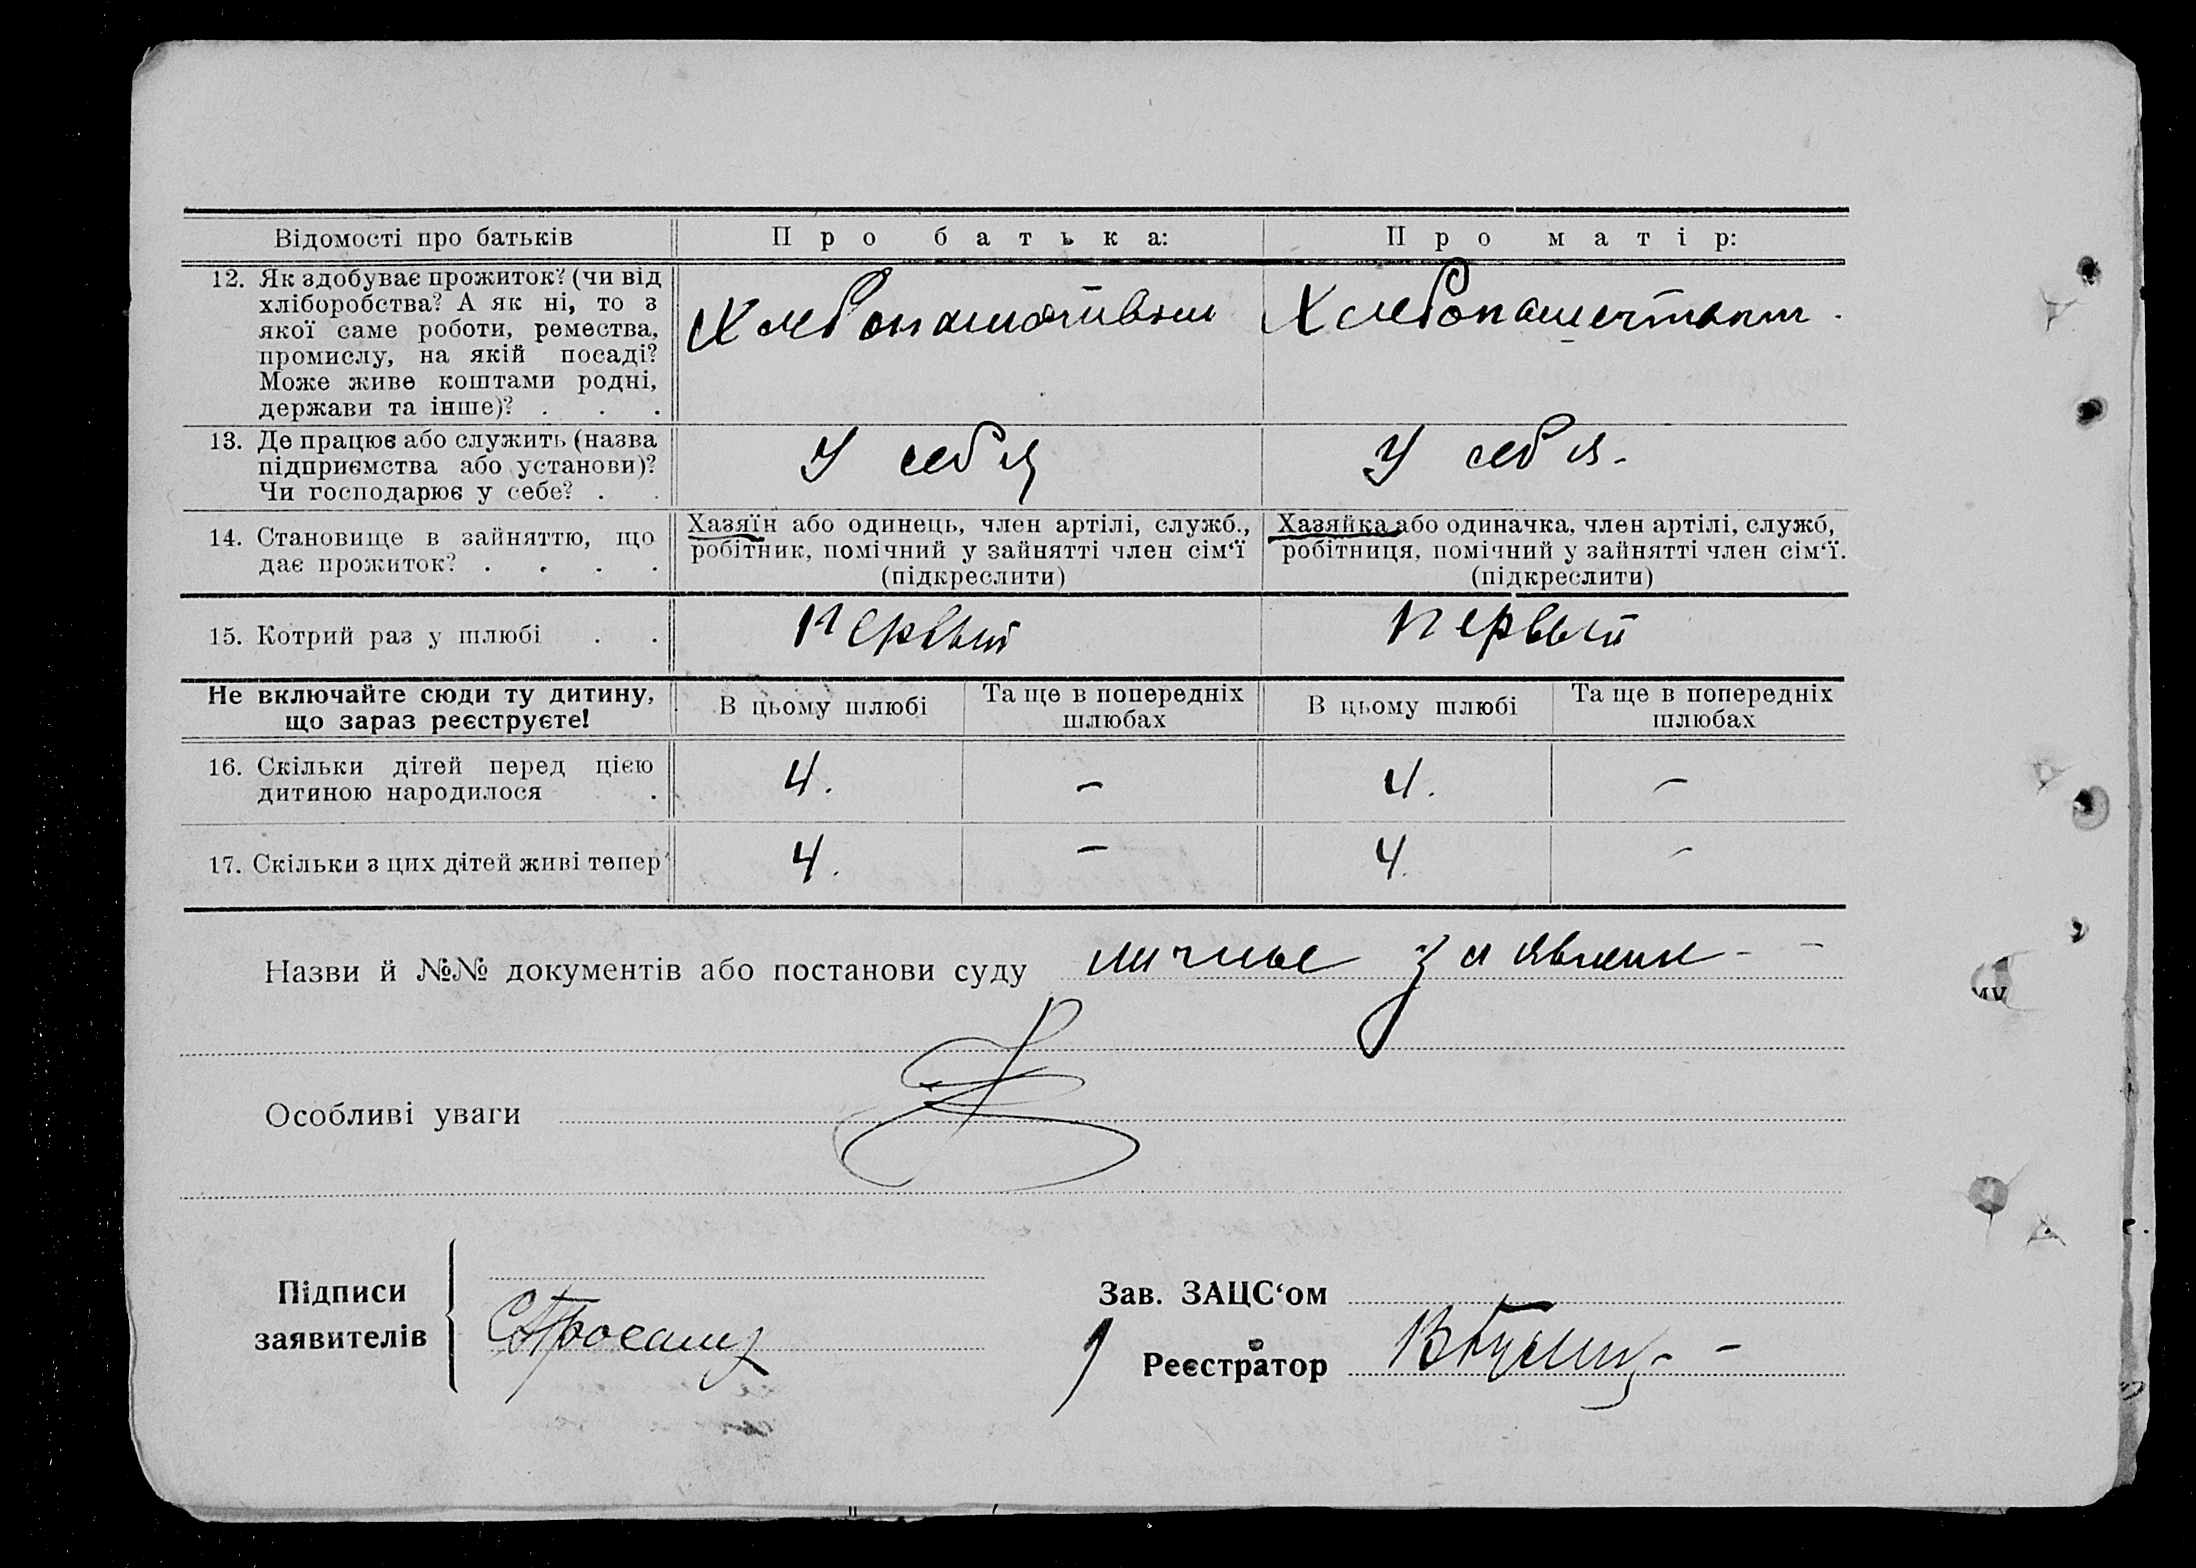 Відомості про батьків
П р о б а т ь к а:
П р о м а т і р:
12. Як здобуває прожиток? (чи від
хліборобства? А як ні, то з
якої саме роботи, ремества,
промислу, на якій посаді?
Може живе коштами родні,
держави та інше)? . . .
Хлебопашеством
Хлебопашеством.
13. Де працює або служить (назва
підприємства або установи)?
Чи господарює у себе? . .
У себя
У себя.
14. Становище в зайняттю, що
дає прожиток? . . . .
Хазяїн або одинець, член артілі, служб.,
робітник, помічний у зайнятті член сім‘ї
(підкреслити)
Хазяйка або одиначка, член артілі, служб,
робітниця, помічний у зайнятті член сім‘ї.
(підкреслити)
15. Котрий раз у шлюбі . .
Первый
Первый
Не включайте сюди ту дитину,
що зараз реєструєте!
В цьому шлюбі
Та ще в попередніх
шлюбах
В цьому шлюбі
Та ще в попередніх
шлюбах
16. Скільки дітей перед цією
дитиною народилося .
4. – 4. –
17. Скільки з цих дітей живі тепер
4. – 4. –
Назви й №№ документів або постанови суду личные заявлени - -
Особливі уваги
Підписи
заявителів
Зав. ЗАЦС‘ом
Реєстратор
му